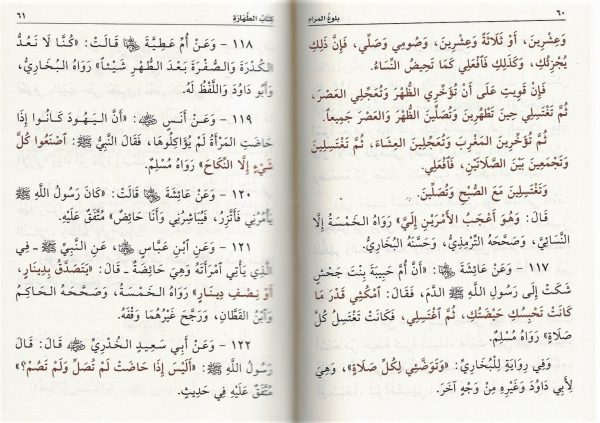 ٦٠
بلوغ المرام
وَعِشْرِينَ، أَوْ ثَلَاثَةً وَعِشْرِينَ، وَصُومِي وَصَلِّي، فَإِنَّ ذَلِكِ
يُجْزِئُكِ، وَكَذَلِكِ فَافْعَلِي كَمَا تَحِيضُ النِّسَاءُ.
فَإِنْ قَوِيتِ عَلَى أَنْ تُؤَخِّرِي الظُّهْرَ وَتُعَجِّلِي العَصْرَ،
ثُمَّ تَغْتَسِلِي حِينَ تَطْهُرِينَ وَتُصَلِّينَ الظُّهْرَ وَالعَصْرَ جَمِيعاً.
ثُمَّ تُؤَخِّرِينَ المَغْرِبَ وَتُعَجِّلِينَ العِشَاءَ، ثُمَّ تَغْتَسِلِينَ
وَتَجْمَعِينَ بَيْنَ الصَّلَاتَيْنِ، فَافْعَلِي.
وَتَغْتَسِلِينَ مَعَ الصُّبْحِ وَتُصَلِّينَ.
قَالَ: وَهُوَ أَعْجَبُ الأَمْرَيْنِ إِلَيَّ» رَوَاهُ الخَمْسَةُ إِلَّا
النَّسَائِيَّ، وَصَحَّحَهُ التِّرْمِذِيُّ، وَحَسَّنَهُ البُخَارِيُّ.
١١٧ - وَعَنْ عَائِشَةَ ﵂: «أَنَّ أُمَّ حَبِيبَةَ بِنْتَ جَحْشٍ
شَكَتْ إِلَى رَسُولِ اللَّهِ ﷺ الدَّمَ، فَقَالَ: امْكُثِي قَدْرَ مَا
كَانَتْ تَحْبِسُكِ حَيْضَتُكِ، ثُمَّ اغْتَسِلِي، فَكَانَتْ تَغْتَسِلُ كُلَّ
صَلَاةٍ» رَوَاهُ مُسْلِمٌ.
وَفِي رِوَايَةٍ لِلْبُخَارِيِّ: «وَتَوَضَّئِي لِكُلِّ صَلَاةٍ»، وَهِيَ
لِأَبِي دَاوُدَ وَغَيْرِهِ مِنْ وَجْهٍ آخَرَ.
كِتَابُ الطَّهَارَةِ
٦١
١١٨ - وَعَنْ أُمِّ عَطِيَّةَ ﵂ قَالَتْ: «كُنَّا لَا نَعُدُّ
الكُدْرَةَ وَالصُّفْرَةَ بَعْدَ الطُّهْرِ شَيْئاً» رَوَاهُ البُخَارِيُّ،
وَأَبُو دَاوُدَ وَاللَّفْظُ لَهُ.
١١٩ - وَعَنْ أَنَسٍ ﵁: «أَنَّ اليَهُودَ كَانُوا إِذَا
حَاضَتِ المَرْأَةُ لَمْ يُؤَاكِلُوهَا، فَقَالَ النَّبِيُّ ﷺ: اصْنَعُوا كُلَّ
شَيْءٍ إِلَّا النِّكَاحَ» رَوَاهُ مُسْلِمٌ.
١٢٠ - وَعَنْ عَائِشَةَ ﵂ قَالَتْ: «كَانَ رَسُولُ اللَّهِ ﷺ
يَأْمُرُنِي فَأَتَّزِرُ، فَيُبَاشِرُنِي وَأَنَا حَائِضٌ» مُتَّفَقٌ عَلَيْهِ.
١٢١ - وَعَنِ ابْنِ عَبَّاسٍ ﵄، عَنِ النَّبِيِّ ﷺ - فِي
الَّذِي يَأْتِي امْرَأَتَهُ وَهِيَ حَائِضَةٌ - قَالَ: «يَتَصَدَّقُ بِدِينَارٍ،
أَوْ نِصْفِ دِينَارٍ» رَوَاهُ الخَمْسَةُ، وَصَحَّحَهُ الحَاكِمُ
وَابْنُ القَطَّانِ، وَرَجَّحَ غَيْرُهُمَا وَقْفَهُ.
١٢٢ - وَعَنْ أَبِي سَعِيدٍ الخُدْرِيِّ ﵁ قَالَ: قَالَ
رَسُولُ اللَّهِ ﷺ: «أَلَيْسَ إِذَا حَاضَتْ لَمْ تُصَلِّ وَلَمْ تَصُمْ؟»
مُتَّفَقٌ عَلَيْهِ فِي حَدِيثٍ.